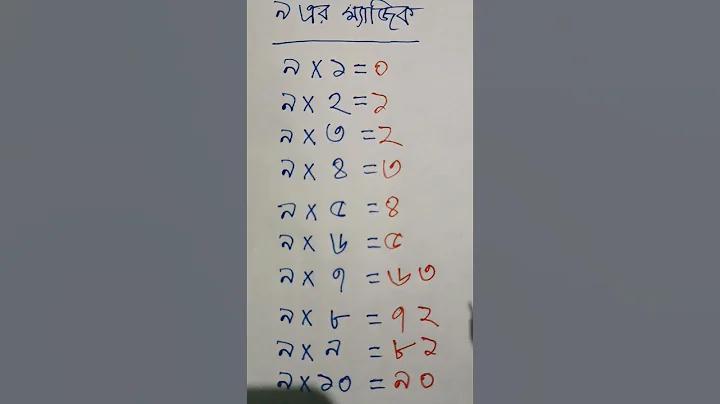 ৯ এর ম্যাজিক
৯ X ১ = ০
৯ X ২ = ১
৯ X ৩ = ২
৯ X ৪ = ৩
৯ X ৫ = ৪
৯ X ৬ = ৫
৯ X ৭ = ৬৩
৯ X ৮ = ৭২
৯ X ৯ = ৮১
৯ X ১০ = ৯০